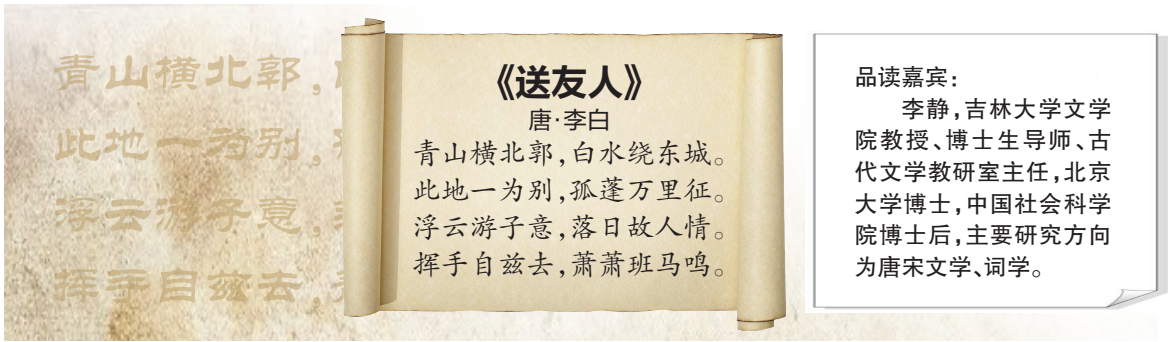 青山横北郭,
此地一为别,
浮云游子意,
挥手自兹去,
《送友人》
唐·李白
青山横北郭,白水绕东城。
此地一为别,孤蓬万里征。
浮云游子意,落日故人情。
挥手自兹去,萧萧班马鸣。
品读嘉宾:
李静,吉林大学文学
院教授、博士生导师、古
代文学教研室主任,北京
大学博士,中国社会科学
院博士后,主要研究方向
为唐宋文学、词学。